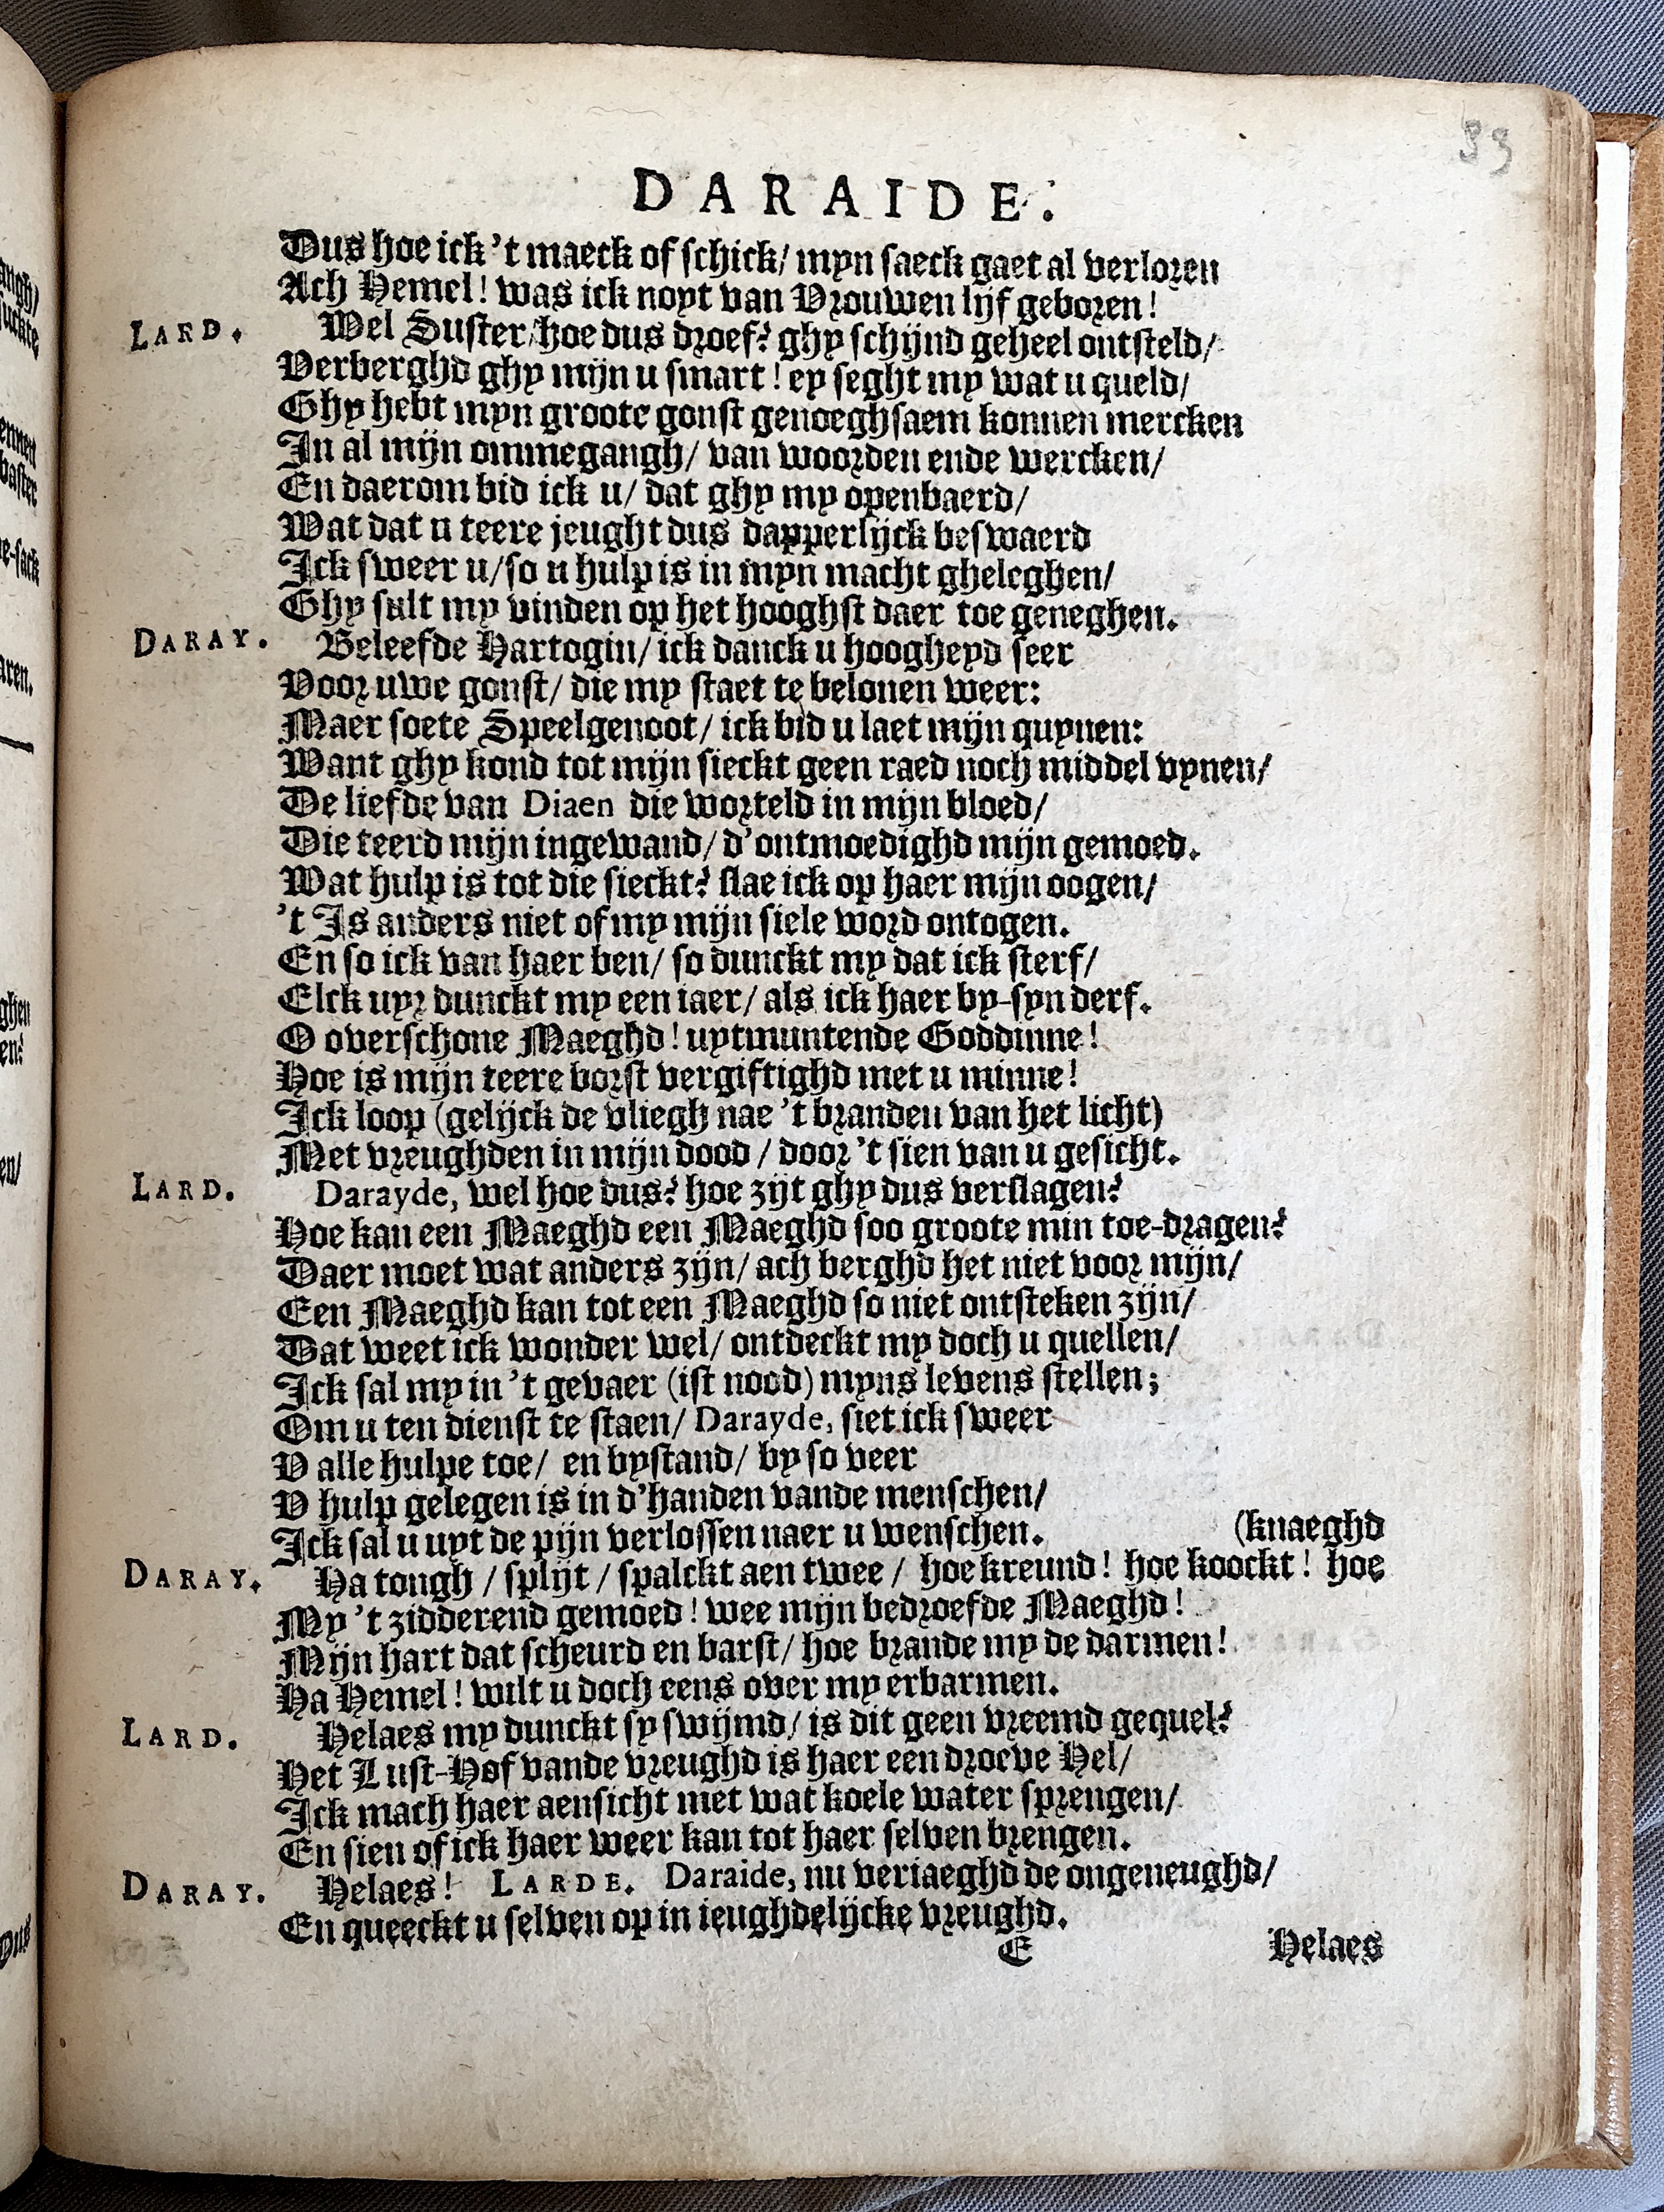 33
DARAIDE.
Dus hoe ick 't maeck of schick/ myn saeck gaet al verloren
Ach Hemel! was ick noyt van Vrouwen lijf geboren!
LARD. Wel Suster/hoe dus droef? ghy schijnd geheel ontsteld/
Verberghd ghy mijn u smart! ey seght my wat u queld/
Ghy hebt myn groote gonst genoeghsaem konnen mercken
In al mijn ommegangh/ van woorden ende wercken/
En daerom bid ick u/ dat ghy my openbaerd/
Wat dat u teere jeught dus dapperlijck beswaerd
Ick sweer u/so u hulp is in myn macht gheleghen/
Ghy sult my vinden op het hooghst daer toe geneghen.
DARAY. Beleefde Hartogin/ ick danck u hoogheyd seer
Voor uwe gonst/ die my staet te belonen weer:
Maer soete Speelgenoot/ ick bid u laet mijn quynen:
Want ghy kond tot mijn sieckt geen raed noch middel vynen/
De liefde van Diaen die worteld in mijn bloed/
Die teerd mijn ingewand/ d'ontmoedighd mijn gemoed.
Wat hulp is tot die sieckt? slae ick op haer mijn oogen/
't Is anders niet of my mijn siele word ontogen.
En so ick van haer ben/ so dunckt my dat ick sterf/
Elck uyr dunckt my een iaer/ als ick haer by-syn derf.
O overschone Maeghd! uytmuntende Goddinne!
Hoe is mijn teere borst vergiftighd met u minne!
Ick loop (gelijck de vliegh nae 't branden van het licht)
Met vreughden in mijn dood / door 't sien van u gesicht.
LARD. Darayde, wel hoe dus? hoe zijt ghy dus verslagen?
Hoe kan een Maeghd een Maeghd soo groote min toe-dragen?
Daer moet wat anders zijn/ ach berghd het niet voor mijn/
Een Maeghd kan tot een Maeghd so niet ontsteken zijn/
Dat weet ick wonder wel/ ontdeckt my doch u quellen/
Ick sal my in 't gevaer (ist nood) myns levens stellen;
Om u ten dienst te staen/ Darayde, siet ick sweer
V alle hulpe toe/ en bystand/ by so veer
V hulp gelegen is in d'handen vande menschen/
Ick sal u uyt de pijn verlossen naer u wenschen. (knaeghd
DARAY. Ha tough / splijt / spalckt aen twee / hoe kreund! hoe koockt! hoe
My 't zidderend gemoed! wee mijn bedroefde Maeghd!
Mijn hart dat scheurd en barst/ hoe brande my de darmen!
Ha Hemel! wilt u doch eens over my erbarmen.
LARD. Helaes my dunckt sy swijmd/ is dit geen vreemd gequel?
Het Lust-Hof vande vreughd is haer een droeve Hel/
Ick mach haer aensicht met wat koele water sprengen/
En sien of ick haer weer kan tot haer selven brengen.
DARAY. Helaes! LARDE. Daraide, nu veriaeghd de ongeneughd/
En queeckt u selven op in ieughdelijcke vreughd.
E Helaes